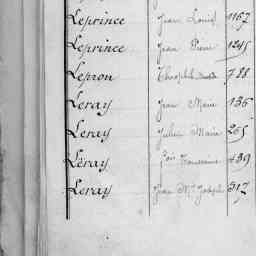 Leprince Jean Louis 1167
Leprince Jean Pierre 1245
Lepron Théophile 788
Leray Jean Marie 136
Leray Julien Marie 265
Leray Fois Toussaint 439
Leray Jean Mie Joseph 317